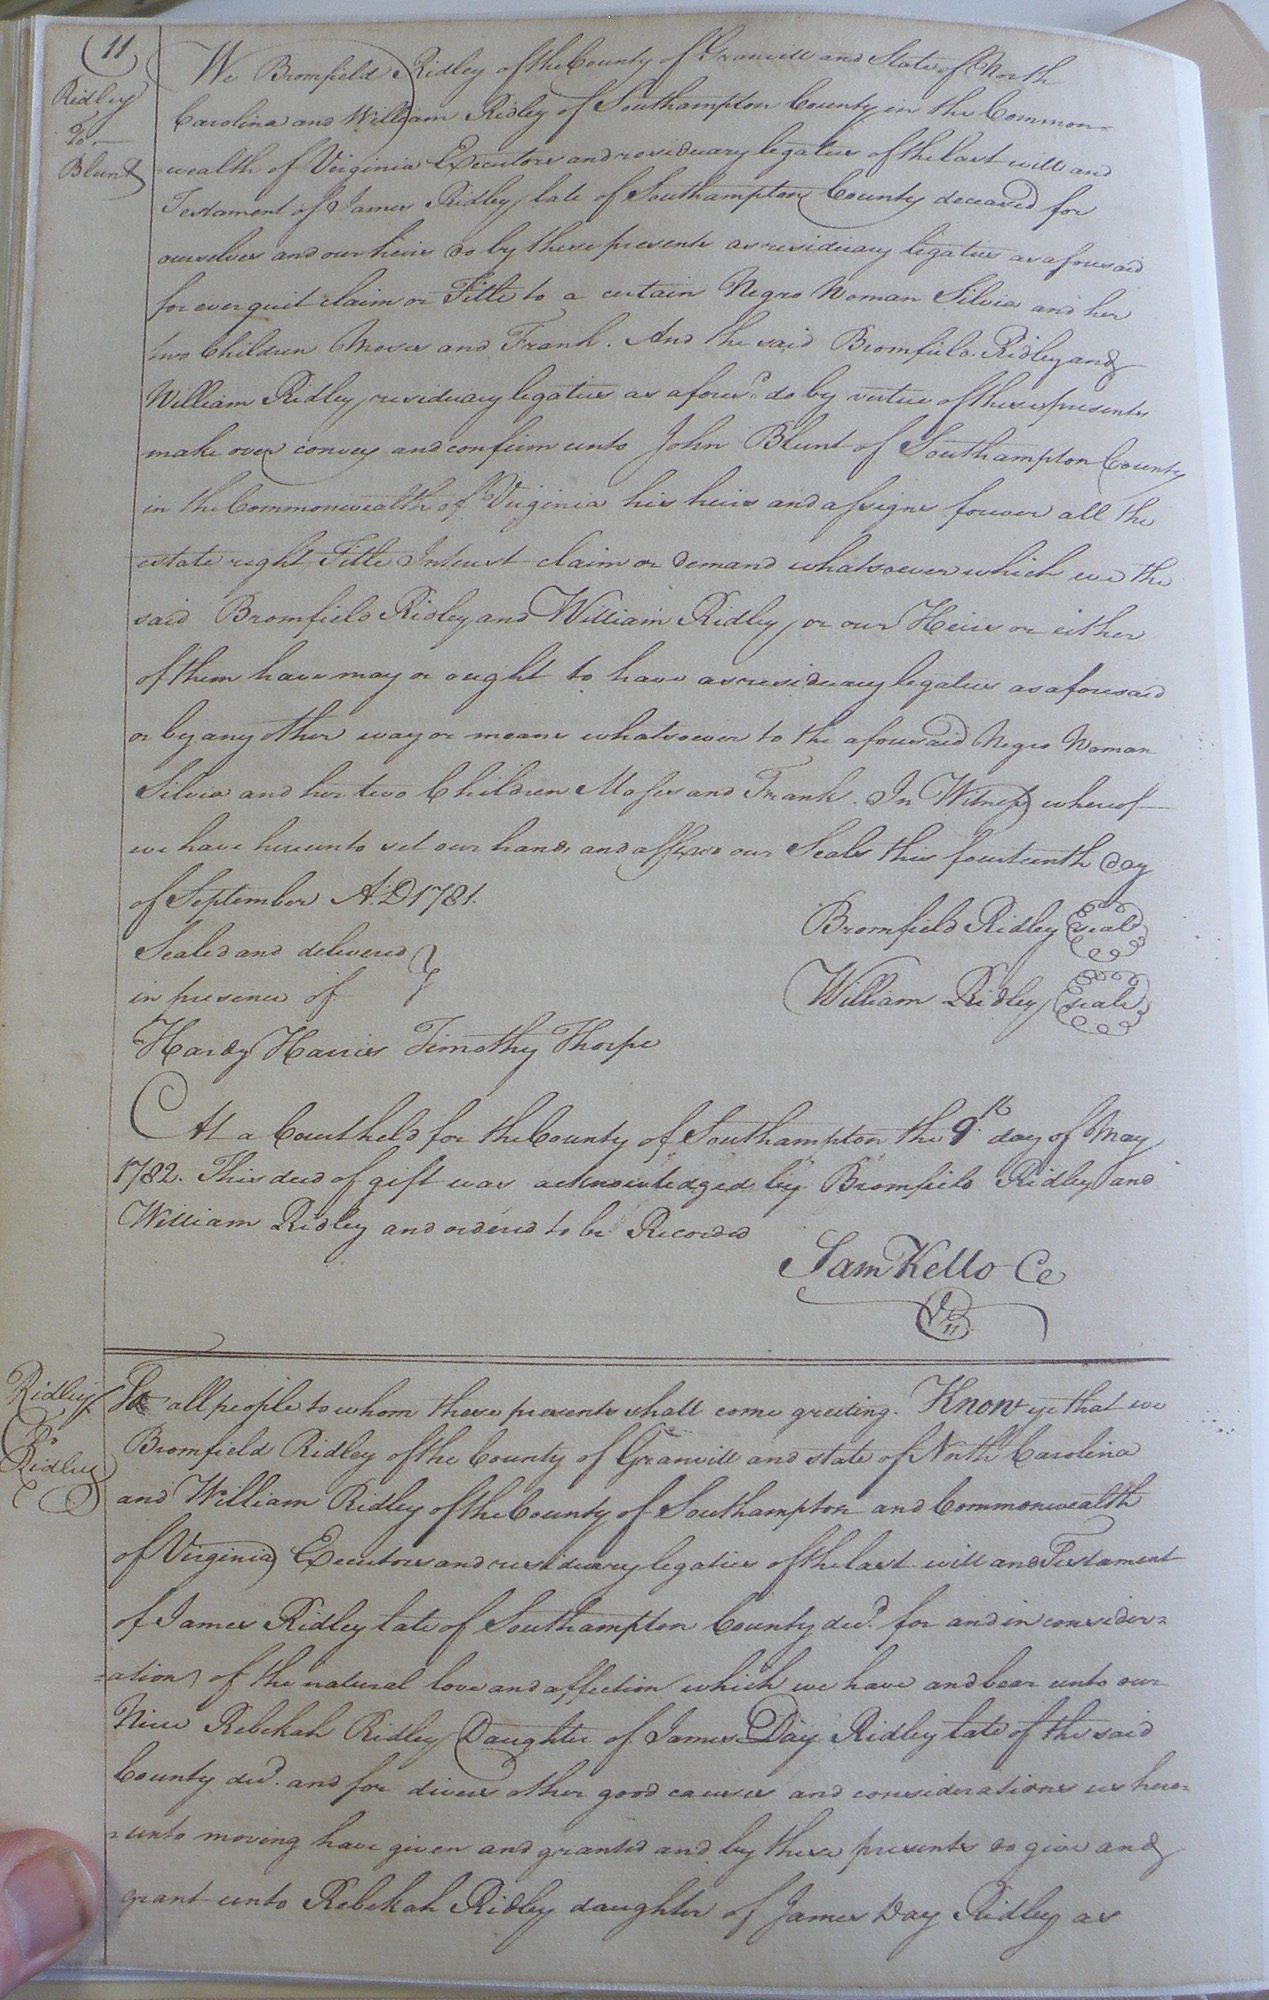 11
Ridley
To
Blunt
We Bromfield Ridley of the County of Granvill and State of North
Carolina and William Ridley of Southampton County in the Common=
=wealth of Virginia Executors and residuary legaties of the last will and
Testament of James Ridley late of Southampton County deceased for
ourselves and our heirs do by these presents as residuary legaties as aforesaid
for ever quit claim or Title to a certain Negro Woman Silvia and her
two Children Moses and Frank. And the said Bromfield Ridley and
William Ridley residuary legaties as afores.d do by virtue of these presents
make over convey and confirm unto John Blunt of Southampton County
in the Commonwealth of Virginia his heirs and assigns forever all the
estate right Title Interest claim or demand whatsoever which we the
said Bromfield Ridley and William Ridley or our Heirs or either
of them have may or ought to have as residuary legaties as aforesaid
or by any other way or means whatsoever to the aforesaid Negro Woman
Silvia and her two Children Moses and Frank. In Witness whereof
we have hereunto set our hands and affixed our Seals this fourteenth day
of September A.D 1781.
Bromfield Ridley Seal
Sealed and delivered }
in presence of
William Ridley Seal
Hardy Harris Timothy Thorpe
At a Court held for the County of Southampton the 9th day of May
1782. This deed of gift was acknowledged by Bromfield Ridley and
William Ridley and ordered to be Recorded
Sam Kello Ce
Ridley
To
Ridley
To all people to whom these presents shall come greeting. Know ye that we
Bromfield Ridley of the County of Granvill and state of North Carolina
and William Ridley of the County of Southampton and Commonwealth
of Virginia Executors and residuary legaties of the last will and Testament
of James Ridley late of Southampton County dec.d for and in consider=
=ation of the natural love and affection which we have and bear unto our
Niece Rebekah Ridley Daughter of James Day Ridley late of the said
County dec.d and for divers other good causes and considerations us here=
=unto moving have given and granted and by these presents do give and
grant unto Rebekah Ridley daughter of James Day Ridley as